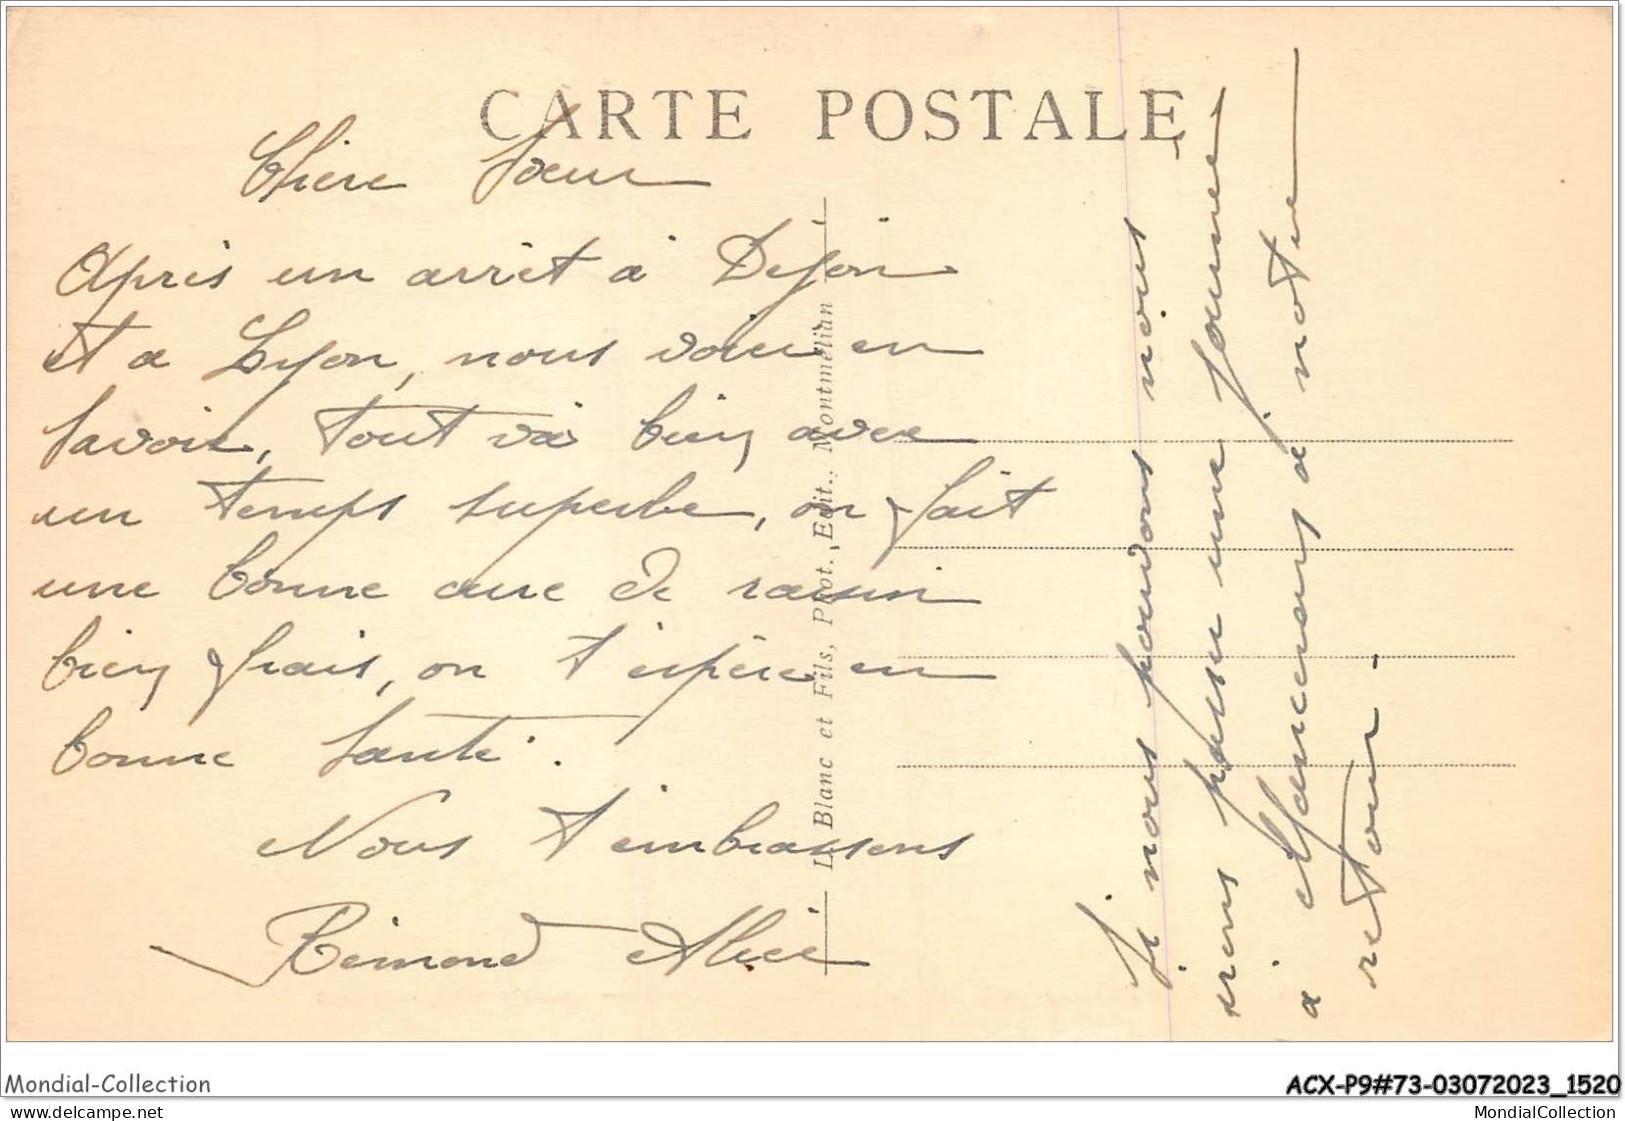 CARTE POSTALE
Chère Soeur
Après un arrêt à Dijon
et a Lyon, nous voici en
Savoie, tout va bien avec
un temps superbe, on fait
une bonne cure de raisin
bien frais, on t'espère en
bonne santé.
Nous t'embrassons
Rémond Alice
L. Blanc et Fils, Phot. Edit., Montmélian
Si nous pouvons nous
irons passer une journée
à à notre
retour.
Mondial-Collection
ACX-P9#73-03072023_1520
MondialCollection